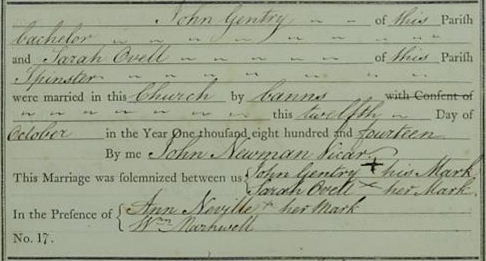 John Gentry of this Parish
bachelor
and Sarah Ovell of this Parish
Spinster
were married in this Church by banns with Consent of
this twelfth Day of
October in the Year One thousand eight hundred and fourteen
By me John Newman Vicar
This Marriage was solemnized between us { John Gentry + his Mark
Sarah Ovell × her Mark
In the Presence of { Ann Neville + her Mark
Wm Markwell
No. 17.